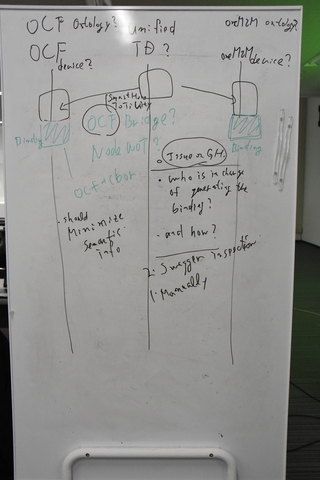 OCF Ontology? unified oneM2M ontology?
OCF TD ? oneM2M
device? device?
Smart Home
OCF Bridge?
Binding Binding
Node WoT?
OCF+cbor
Issue on GH.
• who is in charge
of generating the
binding?
• and how?
- should
minimize
semantic
info
2. Swagger inspection
1. Manually